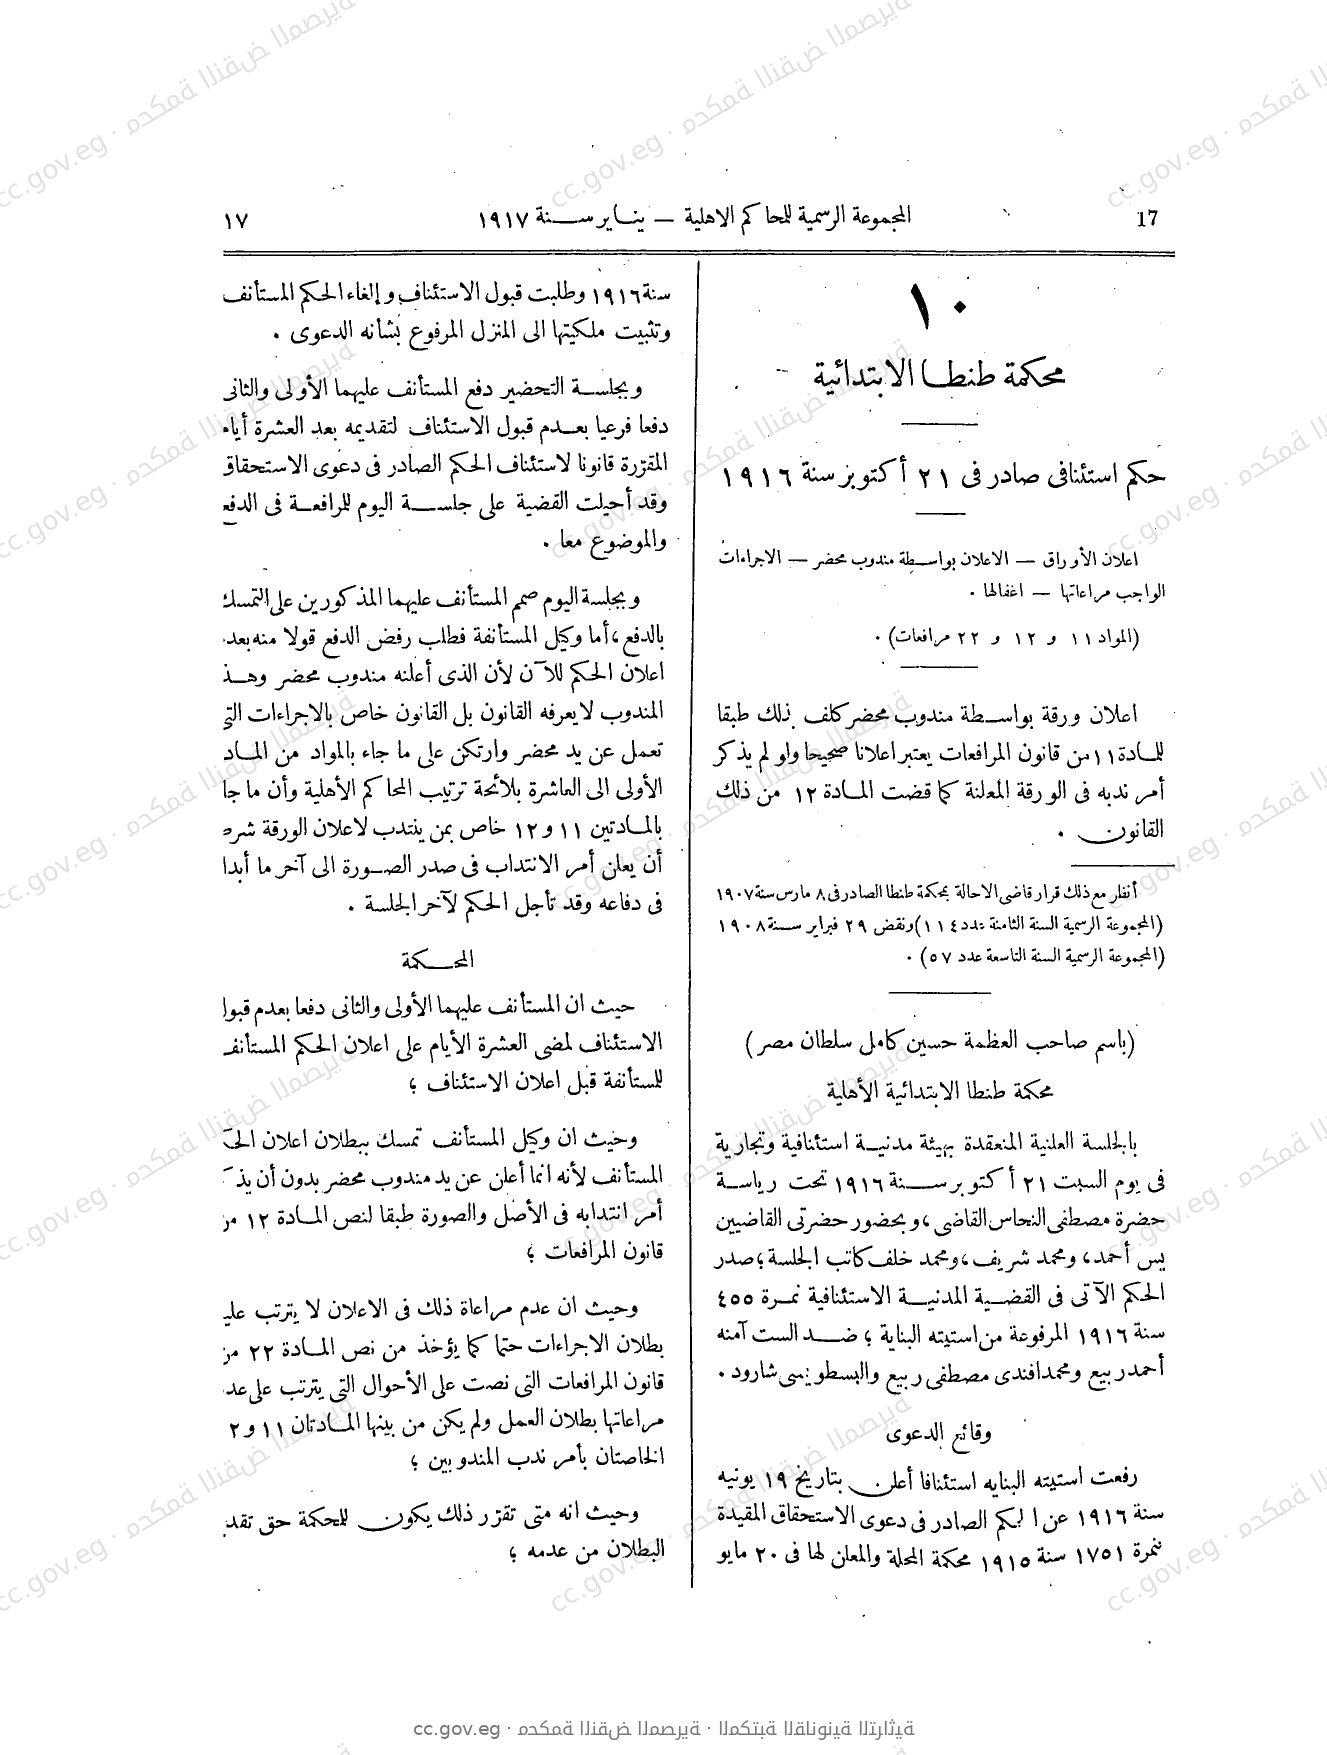 17
المجموعة الرسمية للمحاكم الاهلية — يناير سنة ١٩١٧
١٧
١٠
محكمة طنطا الابتدائية
حكم استئنافى صادر فى ٢١ أكتوبر سنة ١٩١٦
اعلان الأوراق — الاعلان بواسطة مندوب محضر — الاجراءات
الواجب مراعاتها — اغفالها .
(المواد ١١ و ١٢ و ٢٢ مرافعات) .
اعلان ورقة بواسطة مندوب محضر كلف بذلك طبقا
للمادة ١١ من قانون المرافعات يعتبر اعلانا صحيحا ولو لم يذكر
أمر ندبه فى الورقة المعلنة كما قضت المادة ١٢ من ذلك
القانون .
أنظر مع ذلك قرار قاضى الاحالة بمحكمة طنطا الصادر فى ٨ مارس سنة ١٩٠٧
(المجموعة الرسمية السنة الثامنة عدد ١١٤) ونقض ٢٩ فبراير سنة ١٩٠٨
(المجموعة الرسمية السنة التاسعة عدد ٥٧) .
(باسم صاحب العظمة حسين كامل سلطان مصر)
محكمة طنطا الابتدائية الأهلية
بالجلسة العلنية المنعقدة بهيئة مدنية استئنافية وتجارية
فى يوم السبت ٢١ أكتوبر سنة ١٩١٦ تحت رياسة
حضرة مصطفى النحاس القاضى، وبحضور حضرتى القاضيين
يس أحمد، ومحمد شريف، ومحمد خلف كاتب الجلسة؛ صدر
الحكم الآتى فى القضية المدنية الاستئنافية نمرة ٤٥٥
سنة ١٩١٦ المرفوعة من استيته البناية ؛ ضد الست آمنه
أحمد ربيع ومحمد افندى مصطفى ربيع والبسطويسى شارود .
وقائع الدعوى
رفعت استيته البنايه استئنافا أعلن بتاريخ ١٩ يونيه
سنة ١٩١٦ عن الحكم الصادر فى دعوى الاستحقاق المقيدة
بنمرة ١٧٥١ سنة ١٩١٥ محكمة المحلة والمعلن لها فى ٢٠ مايو
سنة ١٩١٦ وطلبت قبول الاستئناف والغاء الحكم المستأنف
وتثبيت ملكيتها الى المنزل المرفوع بشأنه الدعوى .
وبجلسة التحضير دفع المستأنف عليهما الأولى والثانى
دفعا فرعيا بعدم قبول الاستئناف لتقديمه بعد العشرة أيام
المقررة قانونا لاستئناف الحكم الصادر فى دعوى الاستحقاق
وقد أحيلت القضية على جلسة اليوم للمرافعة فى الدفع
والموضوع معا .
وبجلسة اليوم صمم المستأنف عليهما المذكورين على التمسك
بالدفع، أما وكيل المستأنفة فطلب رفض الدفع قولا منه بعد
اعلان الحكم للآن لأن الذى أعلنه مندوب محضر وهذ
المندوب لا يعرفه القانون بل القانون خاص بالاجراءات التى
تعمل عن يد محضر وارتكن على ما جاء بالمواد من الماد
الأولى الى العاشرة بلائحة ترتيب المحاكم الأهلية وأن ما جا
بالمادتين ١١ و ١٢ خاص بمن ينتدب لاعلان الورقة شرط
أن يعلن أمر الانتداب فى صدر الصورة الى آخر ما أبدا
فى دفاعه وقد تأجل الحكم لآخر الجلسة .
المحكمة
حيث ان المستأنف عليهما الأولى والثانى دفعا بعدم قبول
الاستئناف لمضى العشرة الأيام على اعلان الحكم المستأنف
للمستأنفة قبل اعلان الاستئناف ؛
وحيث ان وكيل المستأنف تمسك ببطلان اعلان الحكم
المستأنف لأنه انما أعلن عن يد مندوب محضر بدون أن يذك
أمر انتدابه فى الأصل والصورة طبقا لنص المادة ١٢ من
قانون المرافعات ؛
وحيث ان عدم مراعاة ذلك فى الاعلان لا يترتب علي
بطلان الاجراءات حتما كما يؤخذ من نص المادة ٢٢ من
قانون المرافعات التى نصت على الأحوال التى يترتب على عد
مراعاتها بطلان العمل ولم يكن من بينها المادتان ١١ و ٢
الخاصتان بأمر ندب المندوبين ؛
وحيث انه متى تقرر ذلك يكون للمحكمة حق تقد
البطلان من عدمه ؛
cc.gov.eg · محكمة النقض المصرية · المكتبة القانونية التراثية